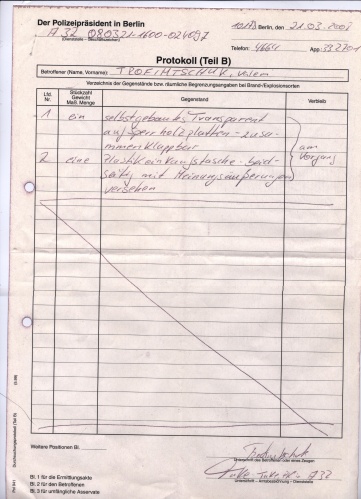 Der Polizeipräsident in Berlin
Berlin, den 21.03.2007
A 32 080321-1600-024097
Dienststelle
Telefon: 4664 App. 332701
Protokoll (Teil B)
Betroffener (Name, Vorname): TROFIMTSCHUK,
Verzeichnis der Gegenstände bzw. räumliche Begrenzungsangaben bei Brand-/Explosionsorten
Lfd. Nr. Stückzahl Gewicht Maß. Menge Gegenstand Verbleib
1 ein selbstgebautes Transparent
auf Sperrholzplatten - zusa-
mmenklappbar
am Vorgang
2 eine Plastikeinkaufstasche - beid-
seitig mit Meinungsäußerungen
versehen
Weitere Positionen Bl.
Unterschrift des Betroffenen oder eines Zeugen
A 32
Unterschrift - Amtsbezeichnung - Dienststelle
Bl. 1 für die Ermittlungsakte
Bl. 2 für den Betroffenen
Bl. 3 für umfängliche Asservate